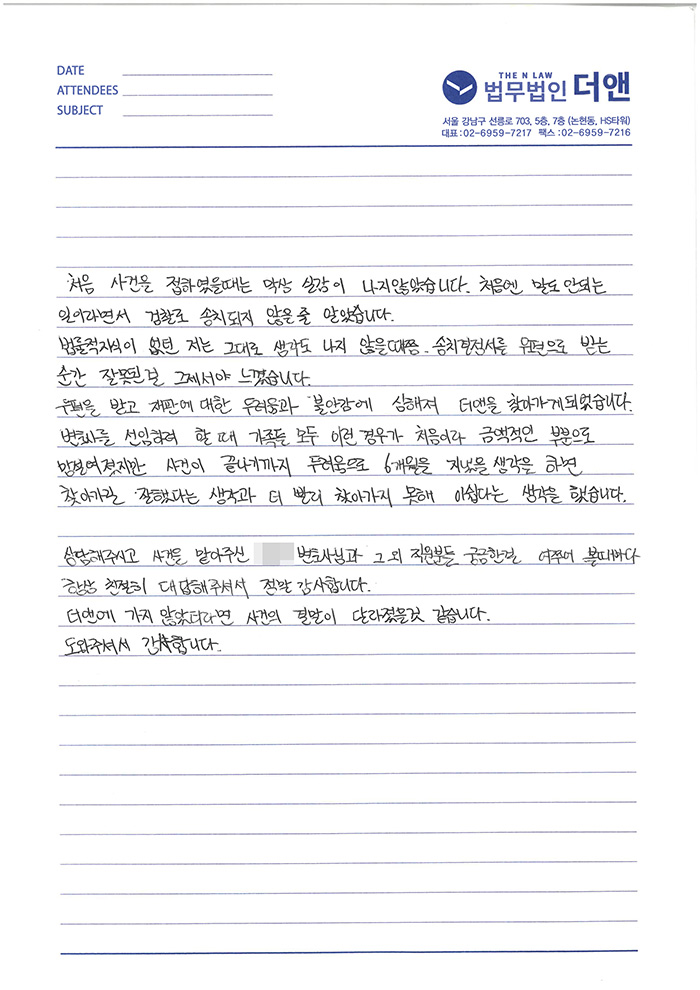 DATE
ATTENDEES
SUBJECT
THE N LAW
법무법인 더앤
서울 강남구 선릉로 703, 5층, 7층 (논현동, HS타워)
대표:02-6959-7217 팩스:02-6959-7216
처음 사건을 접하였을때는 막상 실감이 나지않았습니다. 처음엔 말도 안되는
일이라면서 검찰로 송치되지 않을 줄 알았습니다.
법률적지식이 없던 저는 그대로 생각도 나지 않을때쯤. 송치결정서를 우편으로 받는
순간 잘못된걸 그제서야 느꼈습니다.
우편을 받고 재판에 대한 두려움과 불안감에 심해져 더앤을 찾아가게되었습니다.
변호사를 선임하려 할 때 가족들 모두 이런 경우가 처음이라 금액적인 부분으로
망설여졌지만 사건이 끝나기까지 두려움으로 6개월을 지냈을 생각을 하면
찾아가길 잘했다는 생각과 더 빨리 찾아가지 못해 아쉽다는 생각을 했습니다.
상담해주시고 사건을 맡아주신 변호사님과 그 외 직원분들 궁금한걸 여쭈어 볼때마다
항상 친절히 대답해주셔서 정말 감사합니다.
더앤에 가지 않았더라면 사건의 결말이 달라졌을것 같습니다.
도와주셔서 감사합니다.